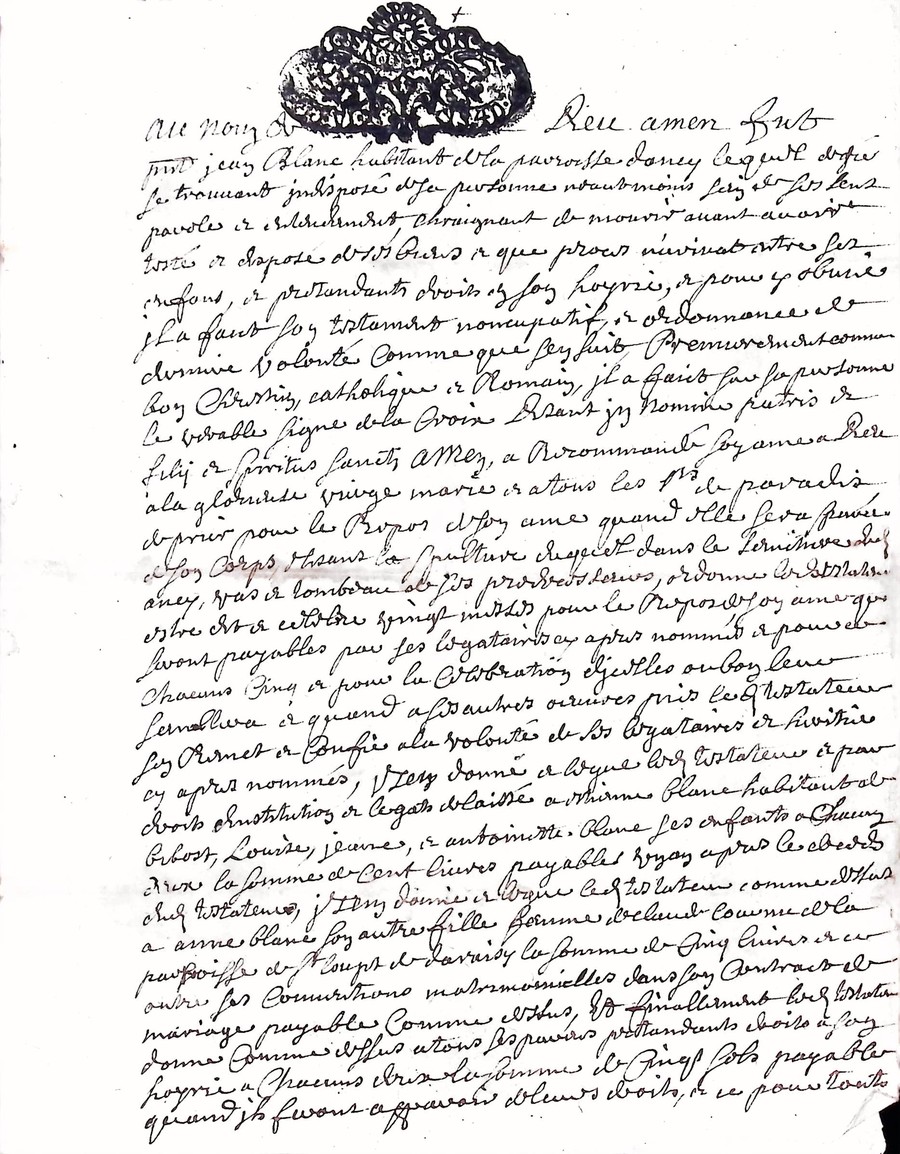 Au nom de Dieu amen fut
pnt jean Blanc habitant de la parroisse dancy lequel de gré
se trouvant jndisposé de sa personne neautmoins sein de ses sens
parole et entendement, chraignant de mourir avant avoir
testé et disposé de ses biens et que proces n'arivat entre ses
enfans, et prétandants droits en son hoyrie, et pour y obvier
jl a faict son testament noncupatif, et ordonnance de
derniere volonté comme que s'en suit, Premierement comme
bon Chrestien, catholique et Romain, jl a faict sur sa personne
le venerable signe de la Croix disant jn nomine patris et
filij et spiritus sancti amen, a Recommandé son ame a Dieu
à la glorieuse vierge marie et a tous les sts de paradis
de prier pour le Repos de son ame quand elle sera séparée
de son Corps, elisant la sepulture duquel dans le semitiere dud
ancy, vas et tombeau de ses predecesseurs, ordonne led testateur
estre dit et celebré vingt messes pour le Repos de son ame que
seront payables par ses legataires cy apres nommés et pour ce
chacuns Cinq et pour la Celebration d'jcelles ou bon leur
semblera et quand a ses autres oeuvres pies led testateur
s'en Remet et Confie a la volonté de ses legataires et heritier
cy apres nommés, jtem donne et legue led testateur et par
droit d'institution et legats delaissé a estienne blanc habitant de
bibost, Louise, jeanne, et antoinette blanc ses enfants a Chacun
deux la somme de Cent livres payables un an apres le deceds
dud testateur, jtem donne et legue led testateur comme dessus
a anne blanc son autre fille femme de claude de la
parroisse de st loupt de la somme de Cinq livres et ce
outre ses Conventions matrimonielles dans son Contract de
mariage payable Comme dessus, Et finallement led testateur
donne Comme dessus a tous ses parens prétandants droits a son
hoyrie a Chacuns deux la somme de Cinq sols payable
quand jls feront apparoir de leurs droits, et ce pour touts